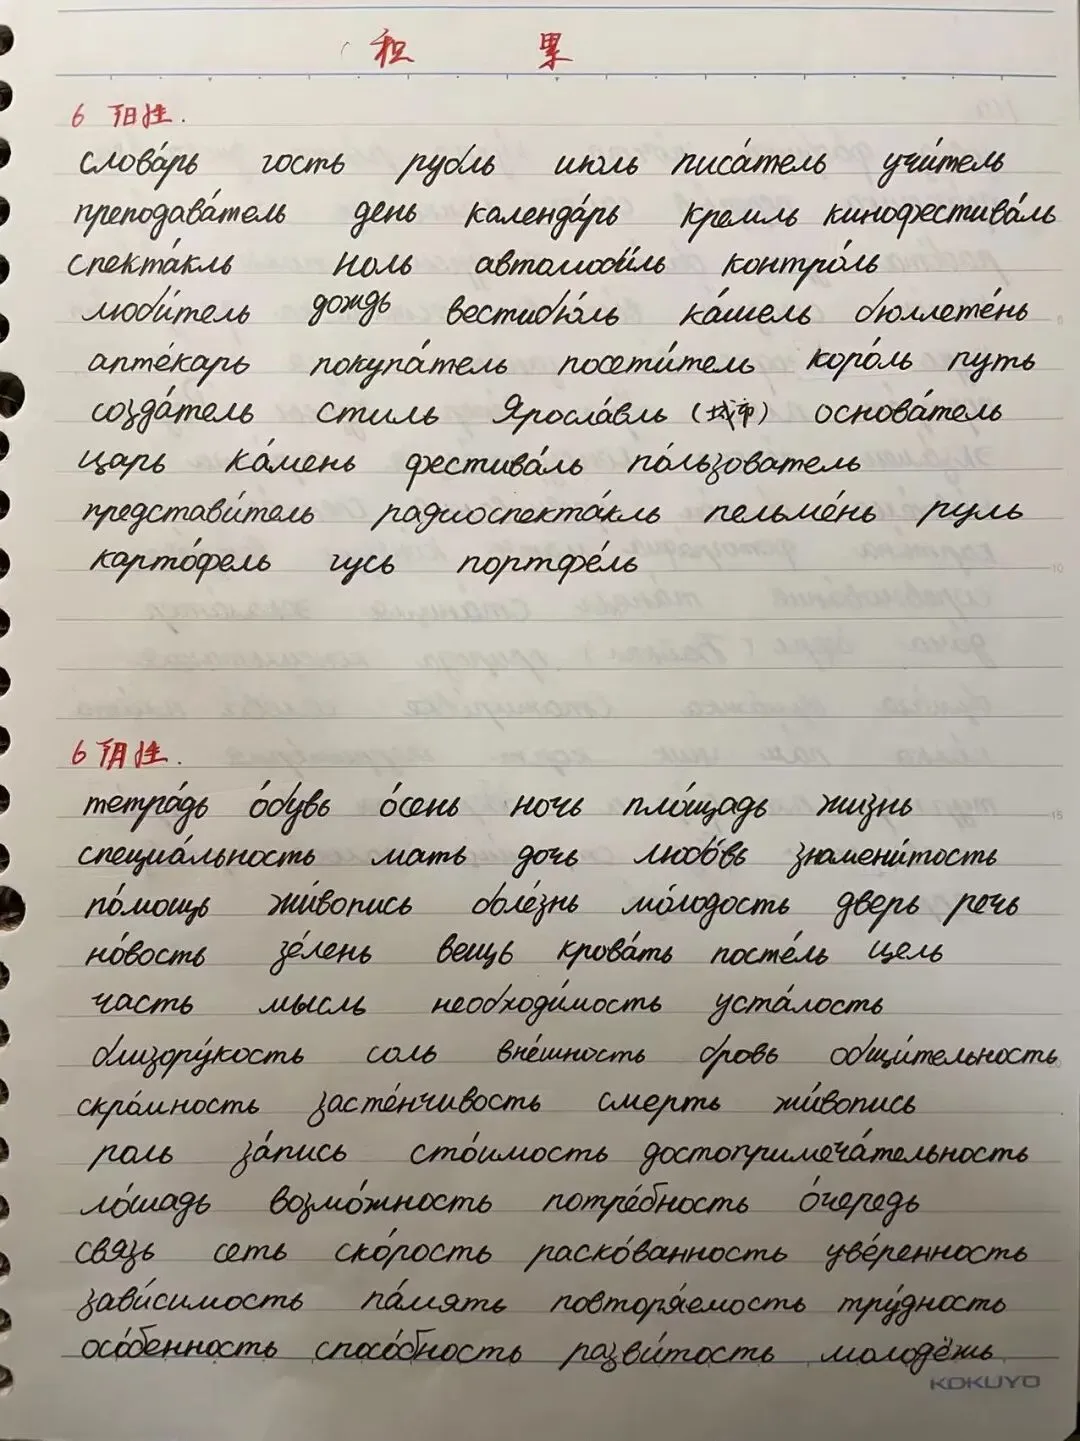 积 累
ь 阳性.
слова́рь гость рубль июль писа́тель учи́тель
преподава́тель день календа́рь Кремль кинофестива́ль
спекта́кль ноль автомоби́ль контро́ль
люби́тель дождь вестибю́ль ка́шель бюллете́нь
апте́карь покупа́тель посети́тель коро́ль путь
созда́тель стиль Яросла́вль (城市) основа́тель
царь ка́мень фестива́ль по́льзователь
представи́тель радиоспекта́кль пельме́нь руль
карто́фель гусь портфе́ль
ь 阴性.
тетра́дь о́бувь о́сень ночь пло́щадь жизнь
специа́льность мать дочь любо́вь знамени́тость
по́мощь жи́вопись боле́знь мо́лодость дверь речь
но́вость зе́лень вещь крова́ть посте́ль цель
часть мысль необходи́мость уста́лость
близору́кость соль вне́шность бровь общи́тельность
скро́мность засте́нчивость смерть жи́вопись
роль за́пись сто́имость достопримеча́тельность
ло́шадь возмо́жность потре́бность о́чередь
связь сеть ско́рость раско́ванность уве́ренность
зави́симость па́мять повторя́емость тру́дность
осо́бенность спосо́бность разви́тость молодёжь
KOKUYO